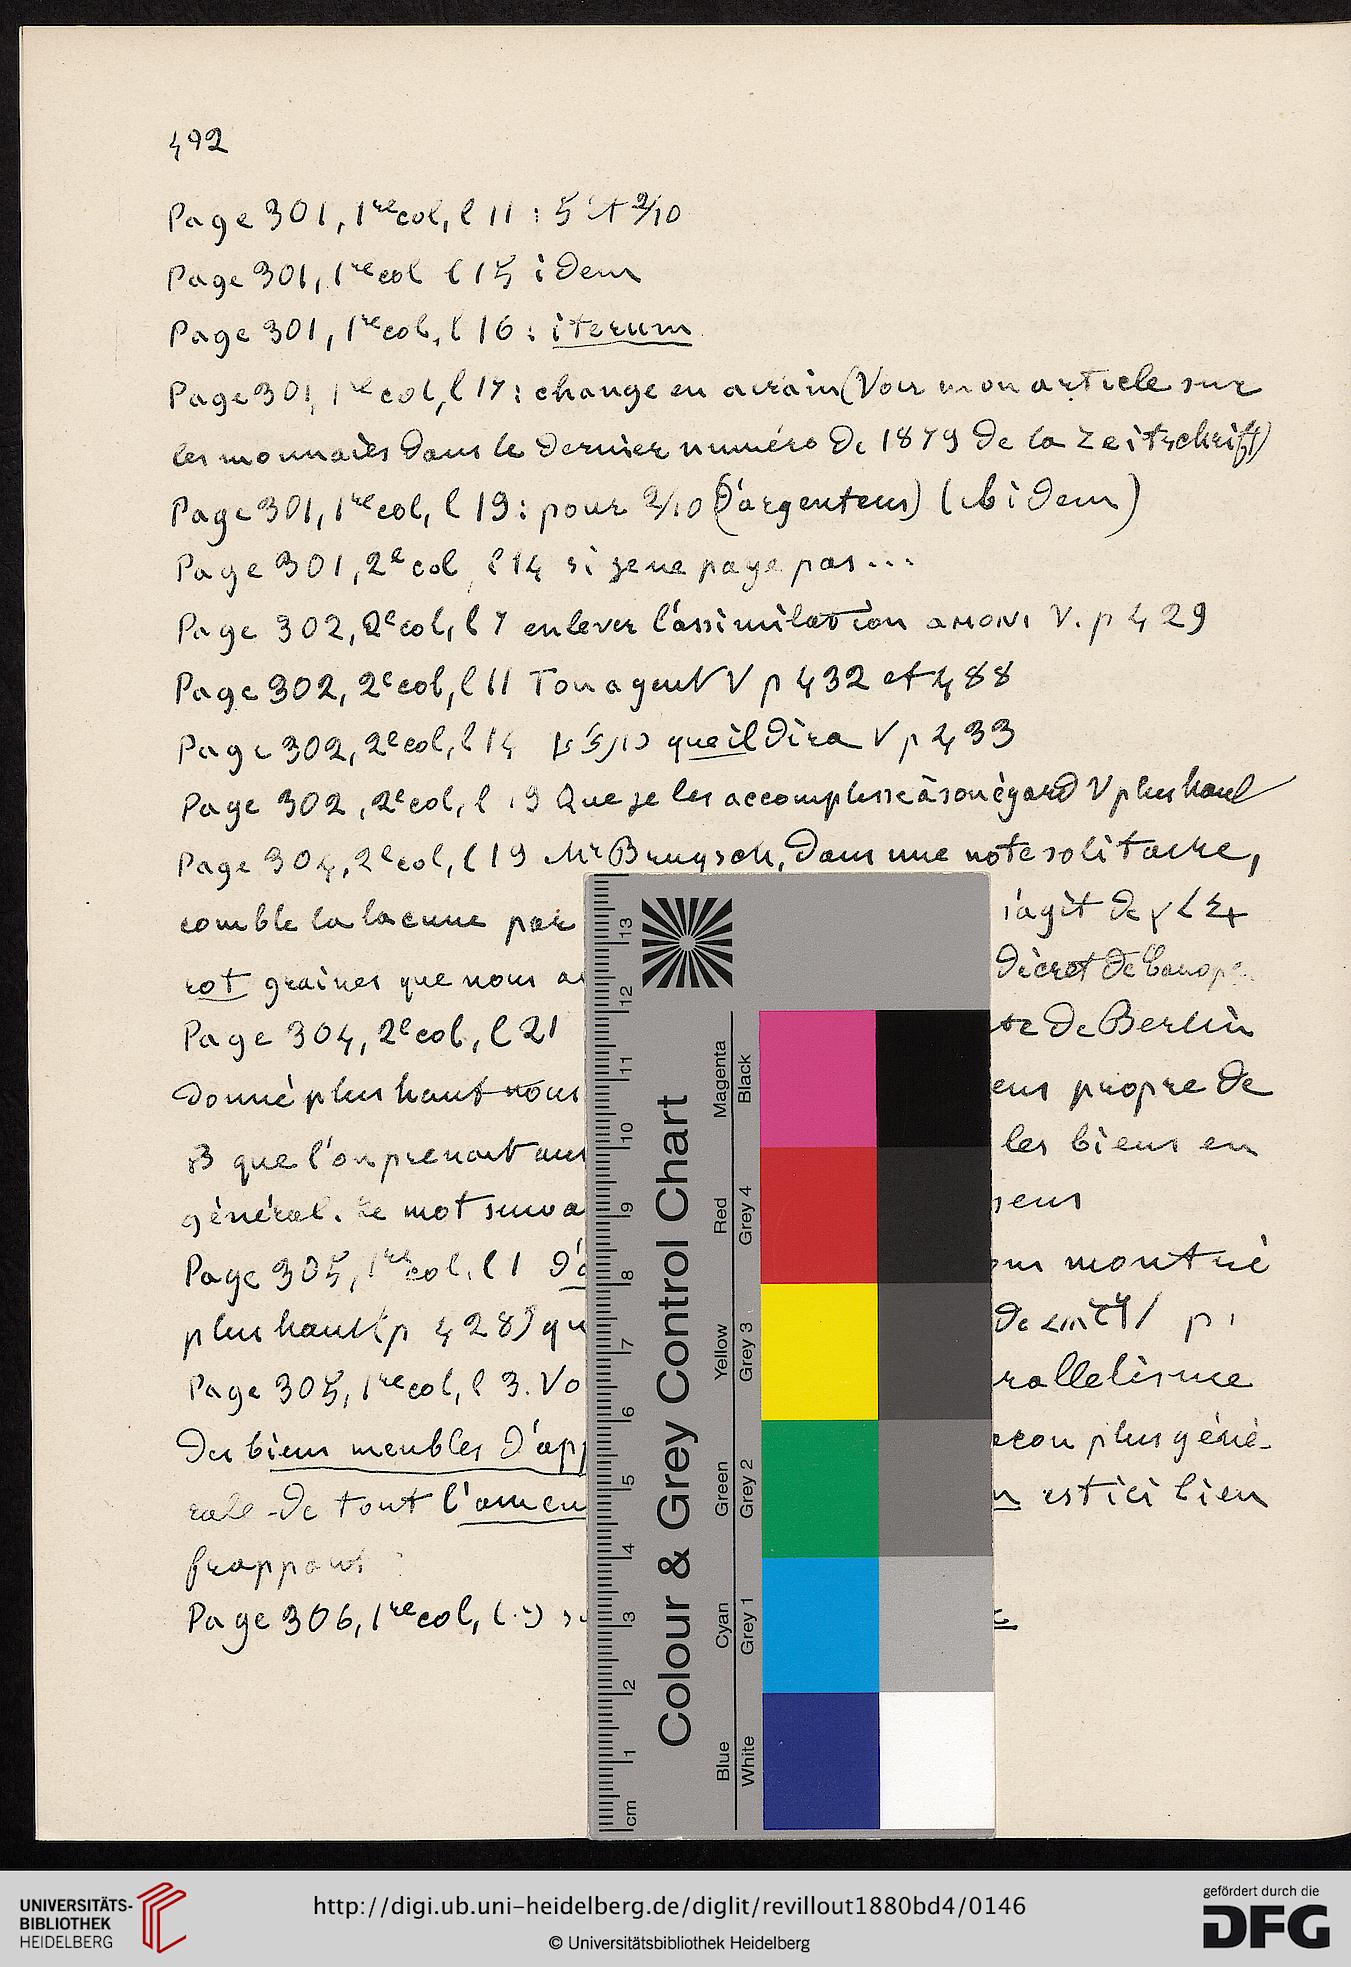 492
Page 301, 1re col, l 11 : 5 et 2/10
Page 301, 1re col l 15 idem
Page 301, 1re col, l 16 : iterum
Page 301, 1re col, l 17 : change en airain (Voir mon article sur
les monnaies dans le dernier numéro de 1879 de la Zeitschrift)
Page 301, 1re col, l 19 : pour 2/10 (d'argenteus) (ibidem)
Page 301, 2e col, l 14 si je ne paye pas...
Page 302, 2e col, l 7 enlever l'assimilation ⲁⲙⲟⲛⲓ V. p 429
Page 302, 2e col, l 11 Ton agent V p 432 et 488
Page 302, 2e col, l 14 que il dira V p 433
Page 302, 2e col, l 19 Que je les accomplisse à son égard V plus haut
Page 304, 2e col, l 19 Mr Brugsch, dans une note solitaire,
comble la lacune par s'agit de
rot graines que nous décret de Canope
Page 304, 2e col, l 21 de Berlin
donné plus haut nous propre de
que l'on prenait les biens en
général. Le mot sens
Page 305, 1re col, l 1 montré
plus haut (p 428) de
Page 305, 1re col, l 3. Vo rallelisme
des biens meubles d'app plus géné-
rale de tout l'amen est ici bien
frappant
Page 306, 1re col,
cm 1 2 3 4 5 6 7 8 9 10 11 12 13
Colour & Grey Control Chart
Blue Cyan Green Yellow Red Magenta
White Grey 1 Grey 2 Grey 3 Grey 4 Black
UNIVERSITÄTS-
BIBLIOTHEK
HEIDELBERG
http://digi.ub.uni-heidelberg.de/diglit/revillout1880bd4/0146
© Universitätsbibliothek Heidelberg
gefördert durch die
DFG